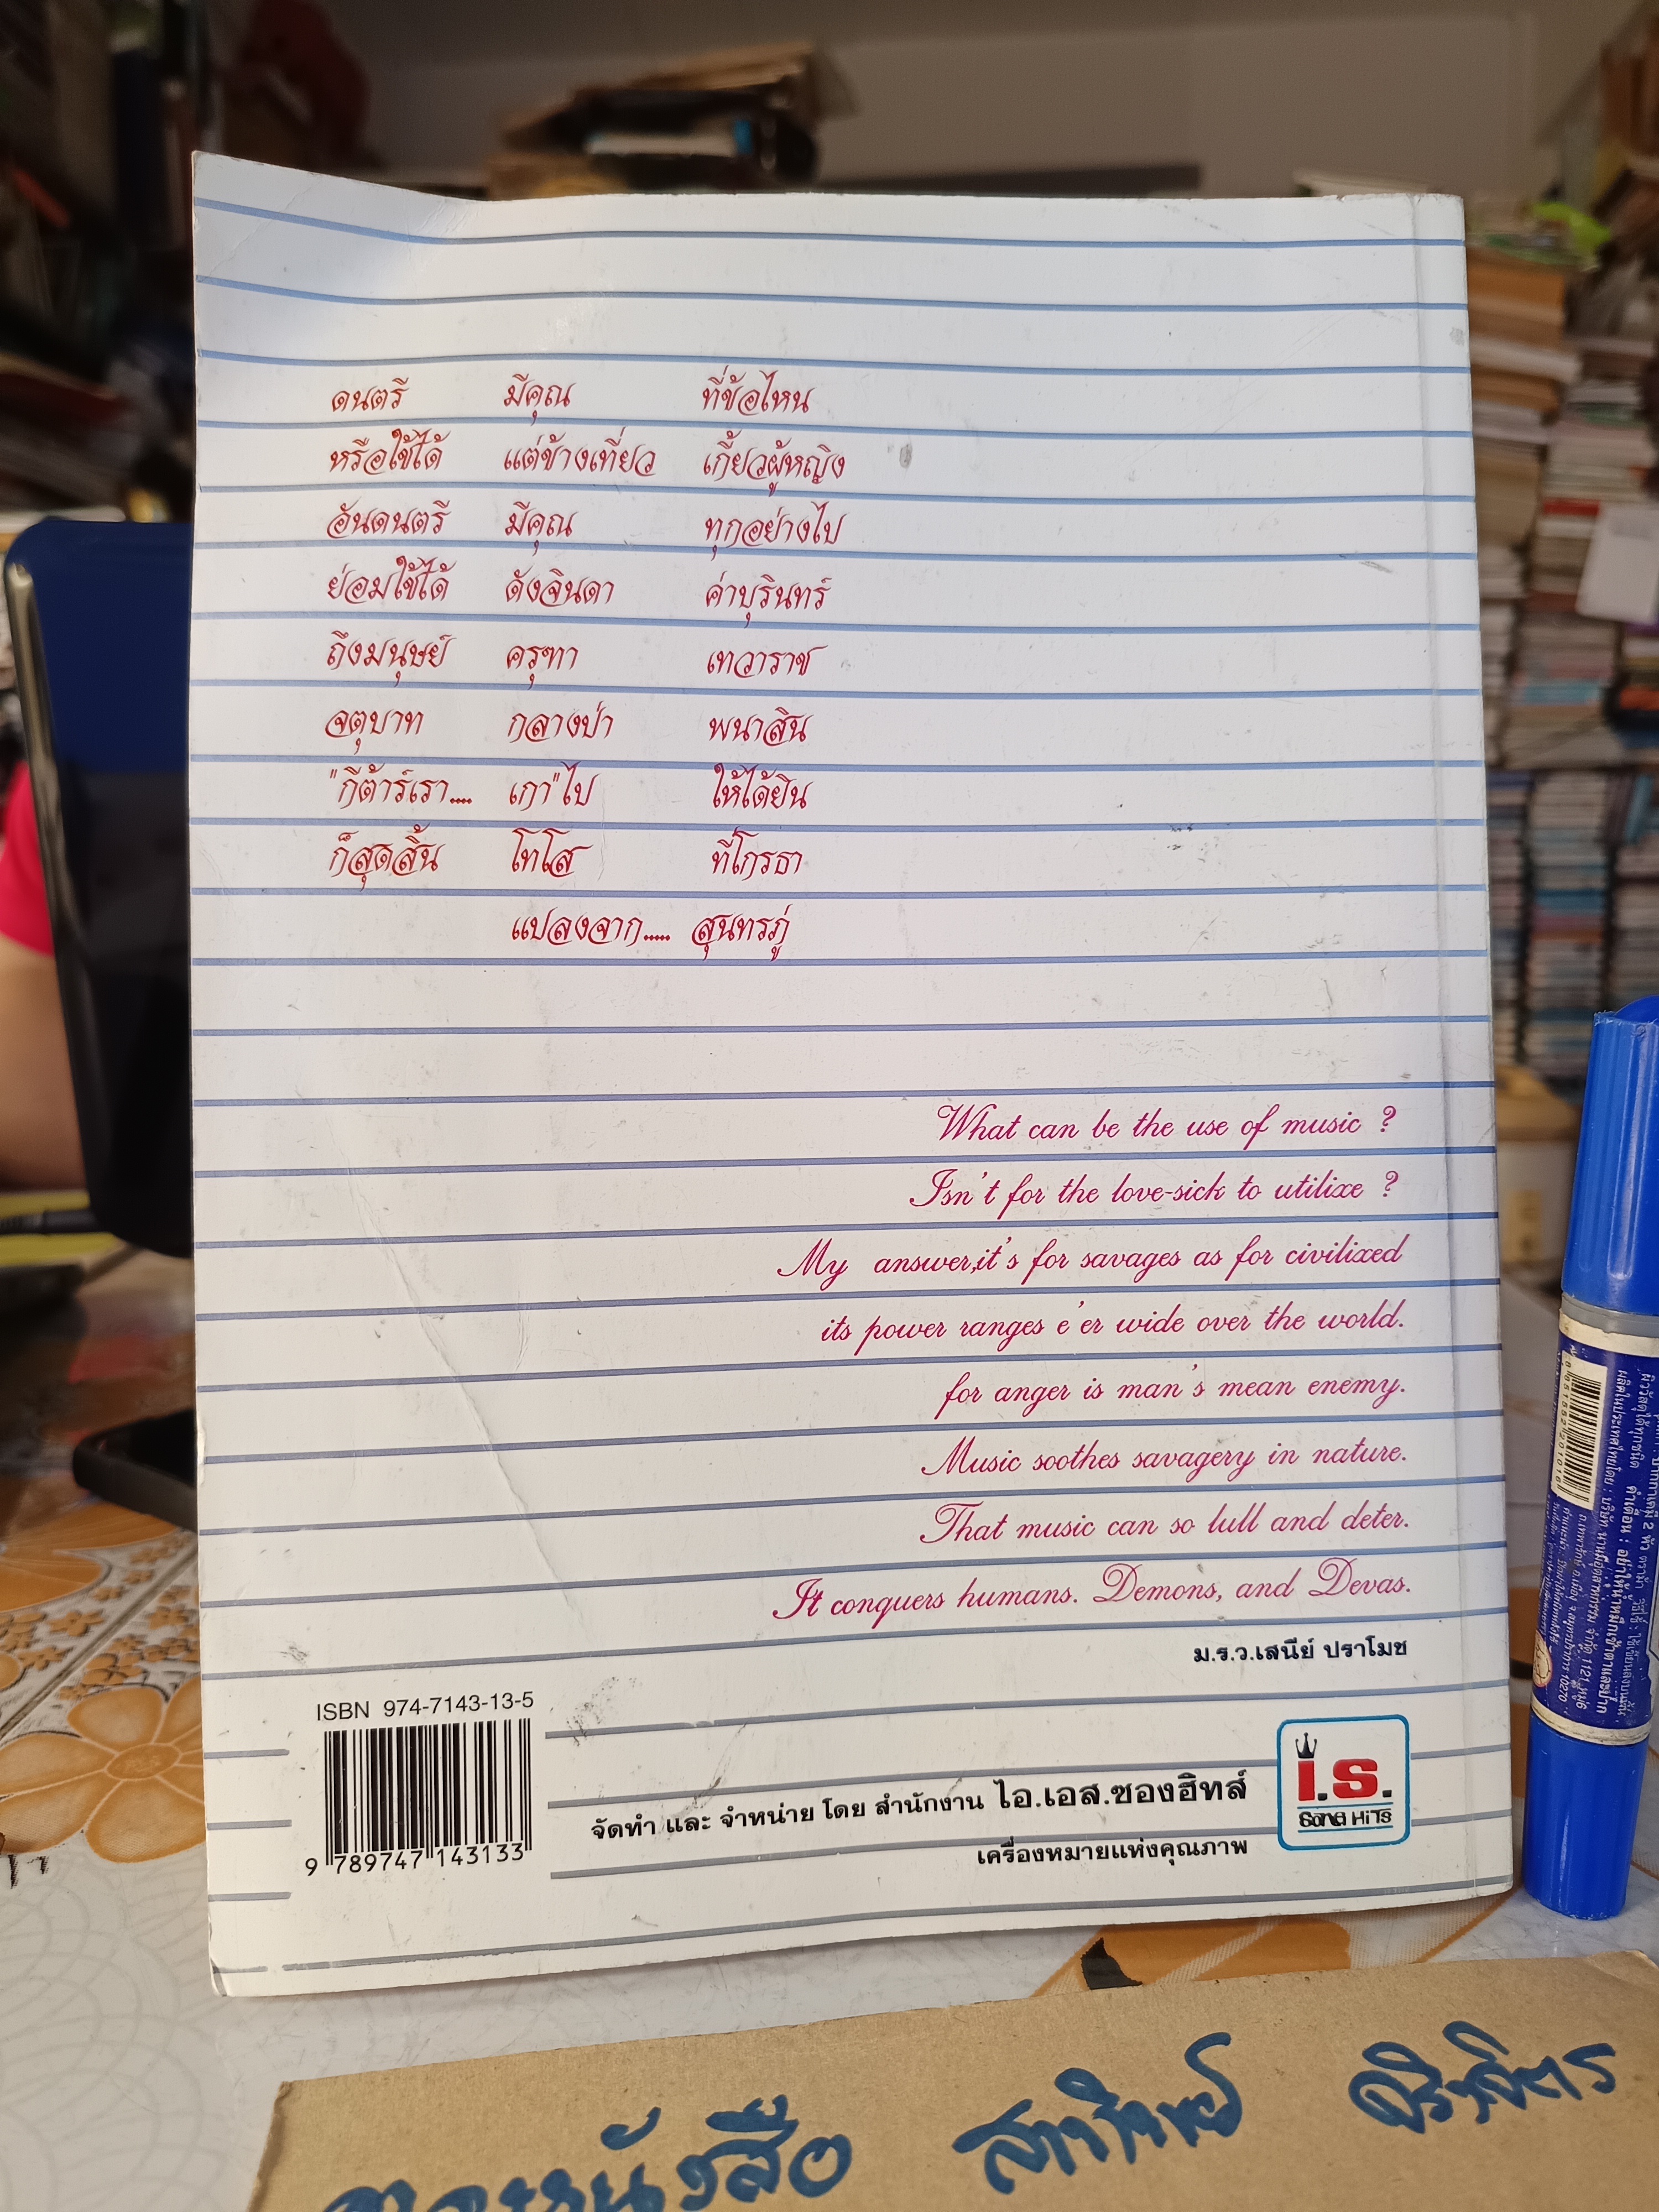 ดนตรี มีคุณ ที่ข้อไหน
หรือใช้ได้ แต่ข้างเที่ยว เกี้ยวผู้หญิง
อันดนตรี มีคุณ ทุกอย่างไป
ย่อมใช้ได้ ดังจินดา ค่าบุรินทร์
ถึงมนุษย์ ครุฑา เทวาราช
จตุบาท กลางป่า พนาสิน
"กีต้าร์เรา.... เกา"ไป ให้ได้ยิน
ก็สุดสิ้น โทโส ที่โกรธา
แปลงจาก..... สุนทรภู่
What can be the use of music ?
Isn't for the love-sick to utilize ?
My answer,it's for savages as for civilized
its power ranges e'er wide over the world.
for anger is man's mean enemy.
Music soothes savagery in nature.
That music can so lull and deter.
It conquers humans. Demons, and Devas.
ม.ร.ว.เสนีย์ ปราโมช
ISBN 974-7143-13-5
9 789747 143133
จัดทำ และ จำหน่าย โดย สำนักงาน ไอ.เอส.ซองฮิทส์
เครื่องหมายแห่งคุณภาพ
i.s.
SONG HiTS